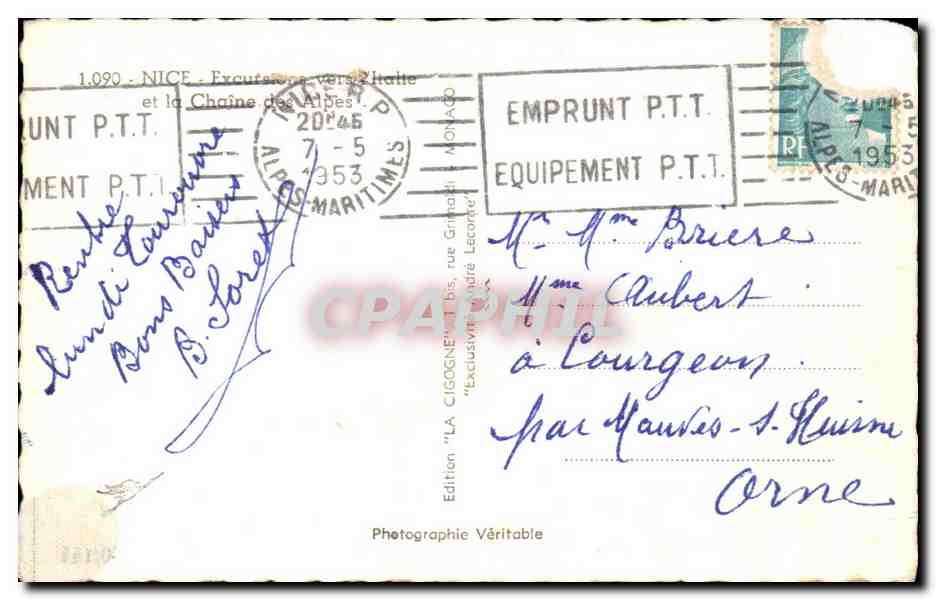 1.090 - NICE - Excursions vers l'Italie
et la Chaîne des Alpes
UNT P.T.T.
MENT P.T.T.
NICE R.P
20H45
7 - 5
1953
ALPES-MARITIMES
EMPRUNT P.T.T.
EQUIPEMENT P.T.T.
RF
20H45
7 - 5
1953
ALPES-MARIT
Rentre
lundi
Bons Baisers
B. Soret
Edition "LA CIGOGNE" 1 bis, rue Grimaldi - MONACO
"Exclusivité André Leconte"
Mr Mme Briere
Mme Aubert
à Courgeon
par Mauves-s-Huisne
Orne
CPAPHIL
Photographie Véritable